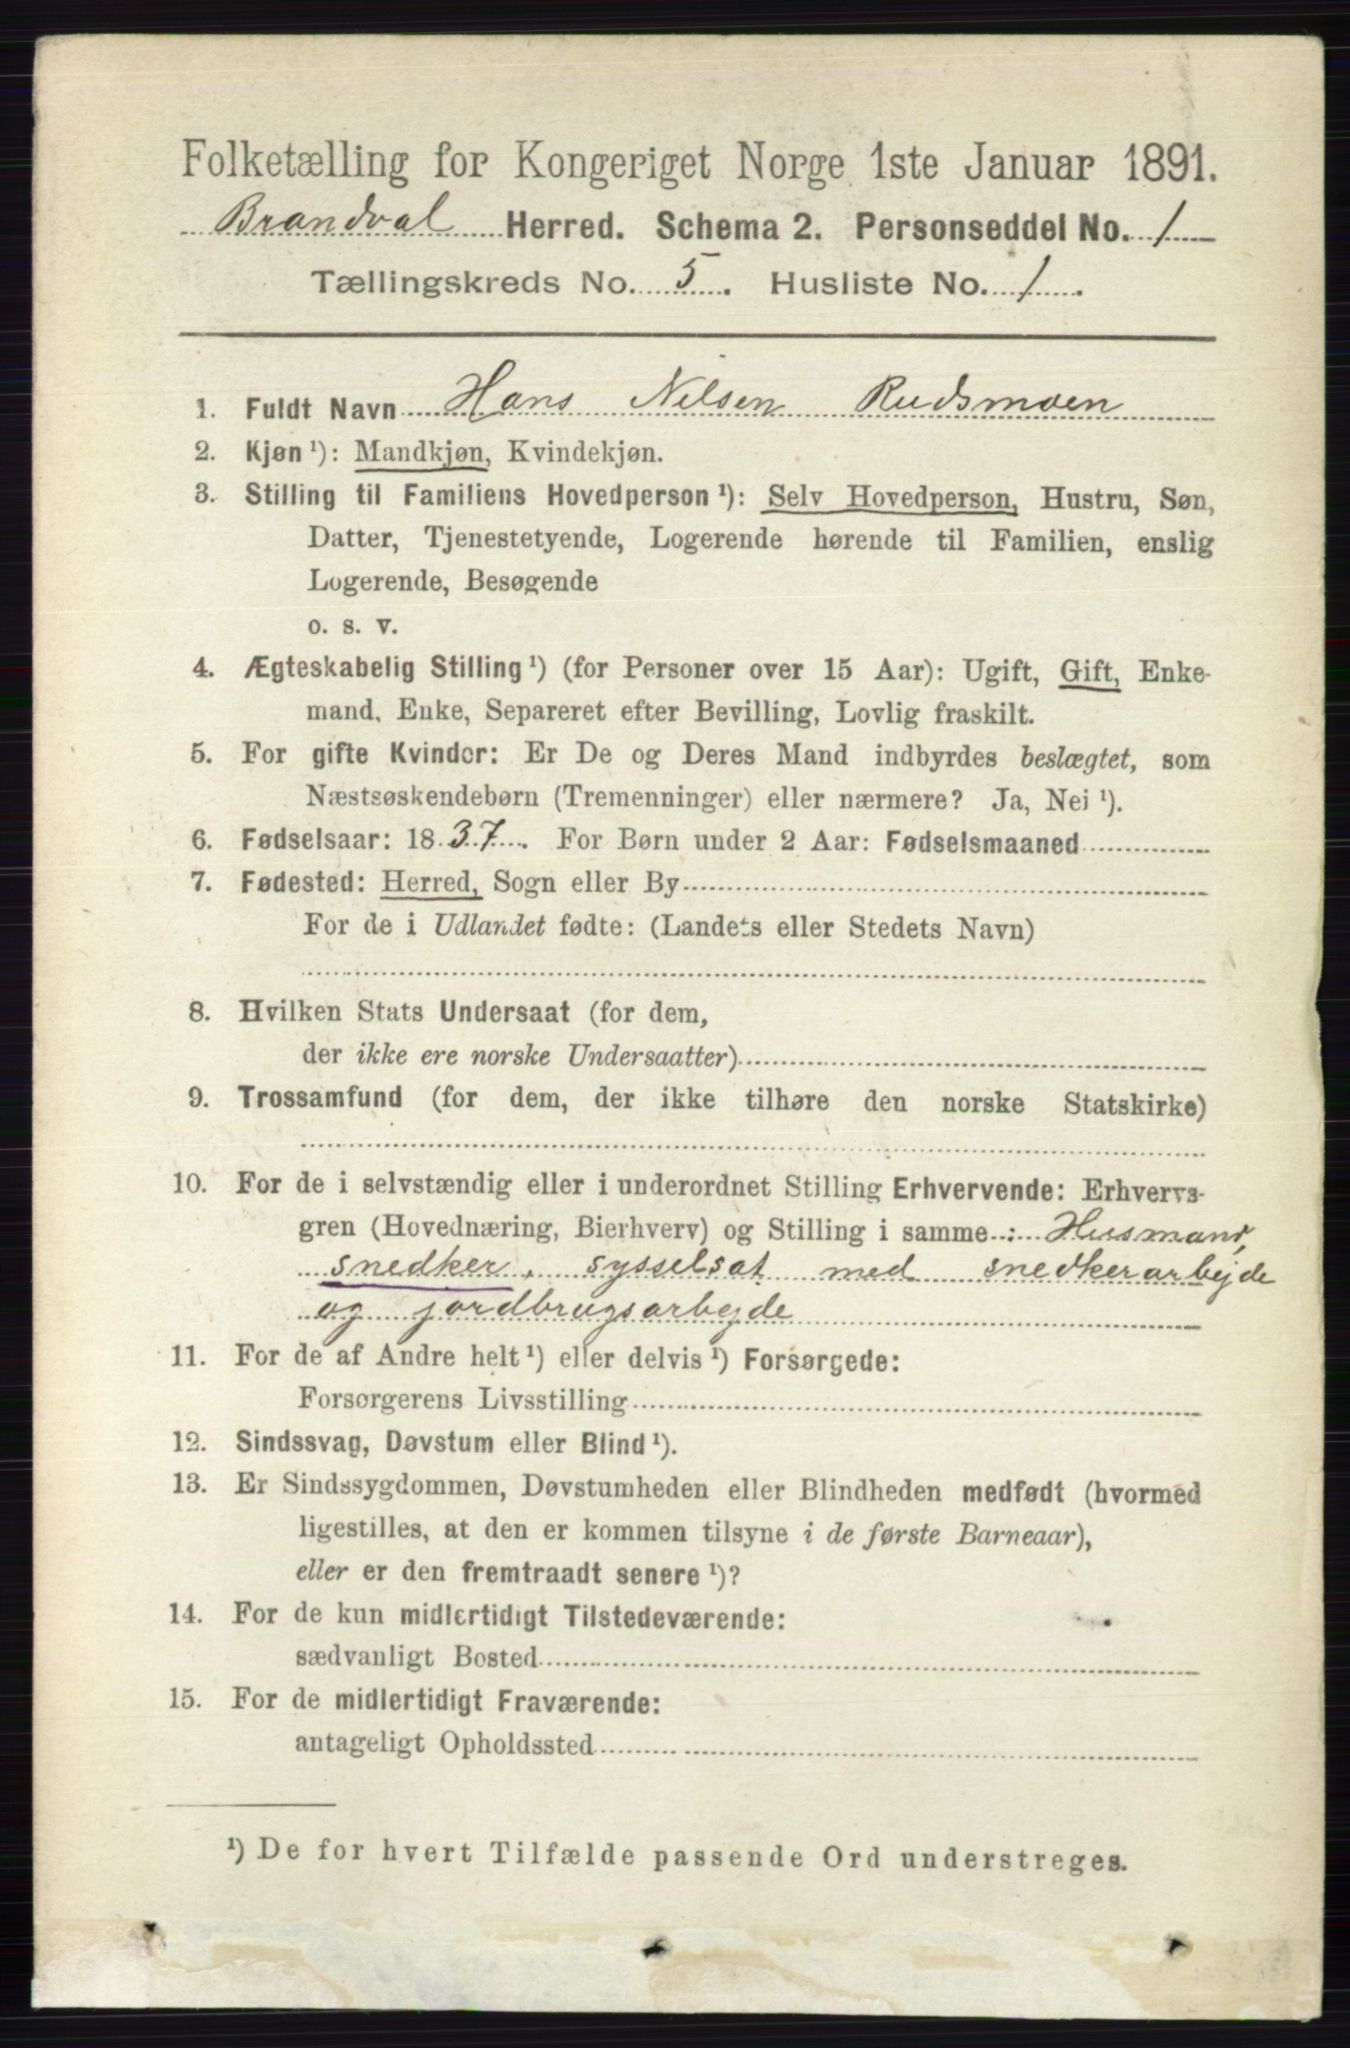 Folketælling for Kongeriget Norge 1ste Januar 1891.
Brandval Herred. Schema 2. Personseddel No. 1
Tællingskreds No. 5. Husliste No. 1.
1. Fuldt Navn Hans Nilsen Rudsmoen
2. Kjøn ¹): Mandkjøn, Kvindekjøn.
3. Stilling til Familiens Hovedperson ¹): Selv Hovedperson, Hustru, Søn,
Datter, Tjenestetyende, Logerende hørende til Familien, enslig
Logerende, Besøgende
o. s. v.
4. Ægteskabelig Stilling ¹) (for Personer over 15 Aar): Ugift, Gift, Enke-
mand, Enke, Separeret efter Bevilling, Lovlig fraskilt.
5. For gifte Kvinder: Er De og Deres Mand indbyrdes beslægtet, som
Næstsøskendebørn (Tremenninger) eller nærmere? Ja, Nei ¹).
6. Fødselsaar: 1837. For Børn under 2 Aar: Fødselsmaaned
7. Fødested: Herred, Sogn eller By
For de i Udlandet fødte: (Landets eller Stedets Navn)
8. Hvilken Stats Undersaat (for dem,
der ikke ere norske Undersaatter)
9. Trossamfund (for dem, der ikke tilhøre den norske Statskirke)
10. For de i selvstændig eller i underordnet Stilling Erhvervende: Erhvervs-
gren (Hovednæring, Bierhverv) og Stilling i samme : Husmand,
snedker, sysselsat med snedkerarbejde
og jordbrugsarbejde
11. For de af Andre helt ¹) eller delvis ¹) Forsørgede:
Forsørgerens Livsstilling
12. Sindssvag, Døvstum eller Blind ¹).
13. Er Sindssygdommen, Døvstumheden eller Blindheden medfødt (hvormed
ligestilles, at den er kommen tilsyne i de første Barneaar),
eller er den fremtraadt senere ¹)?
14. For de kun midlertidigt Tilstedeværende:
sædvanligt Bosted
15. For de midlertidigt Fraværende:
antageligt Opholdssted
¹) De for hvert Tilfælde passende Ord understreges.